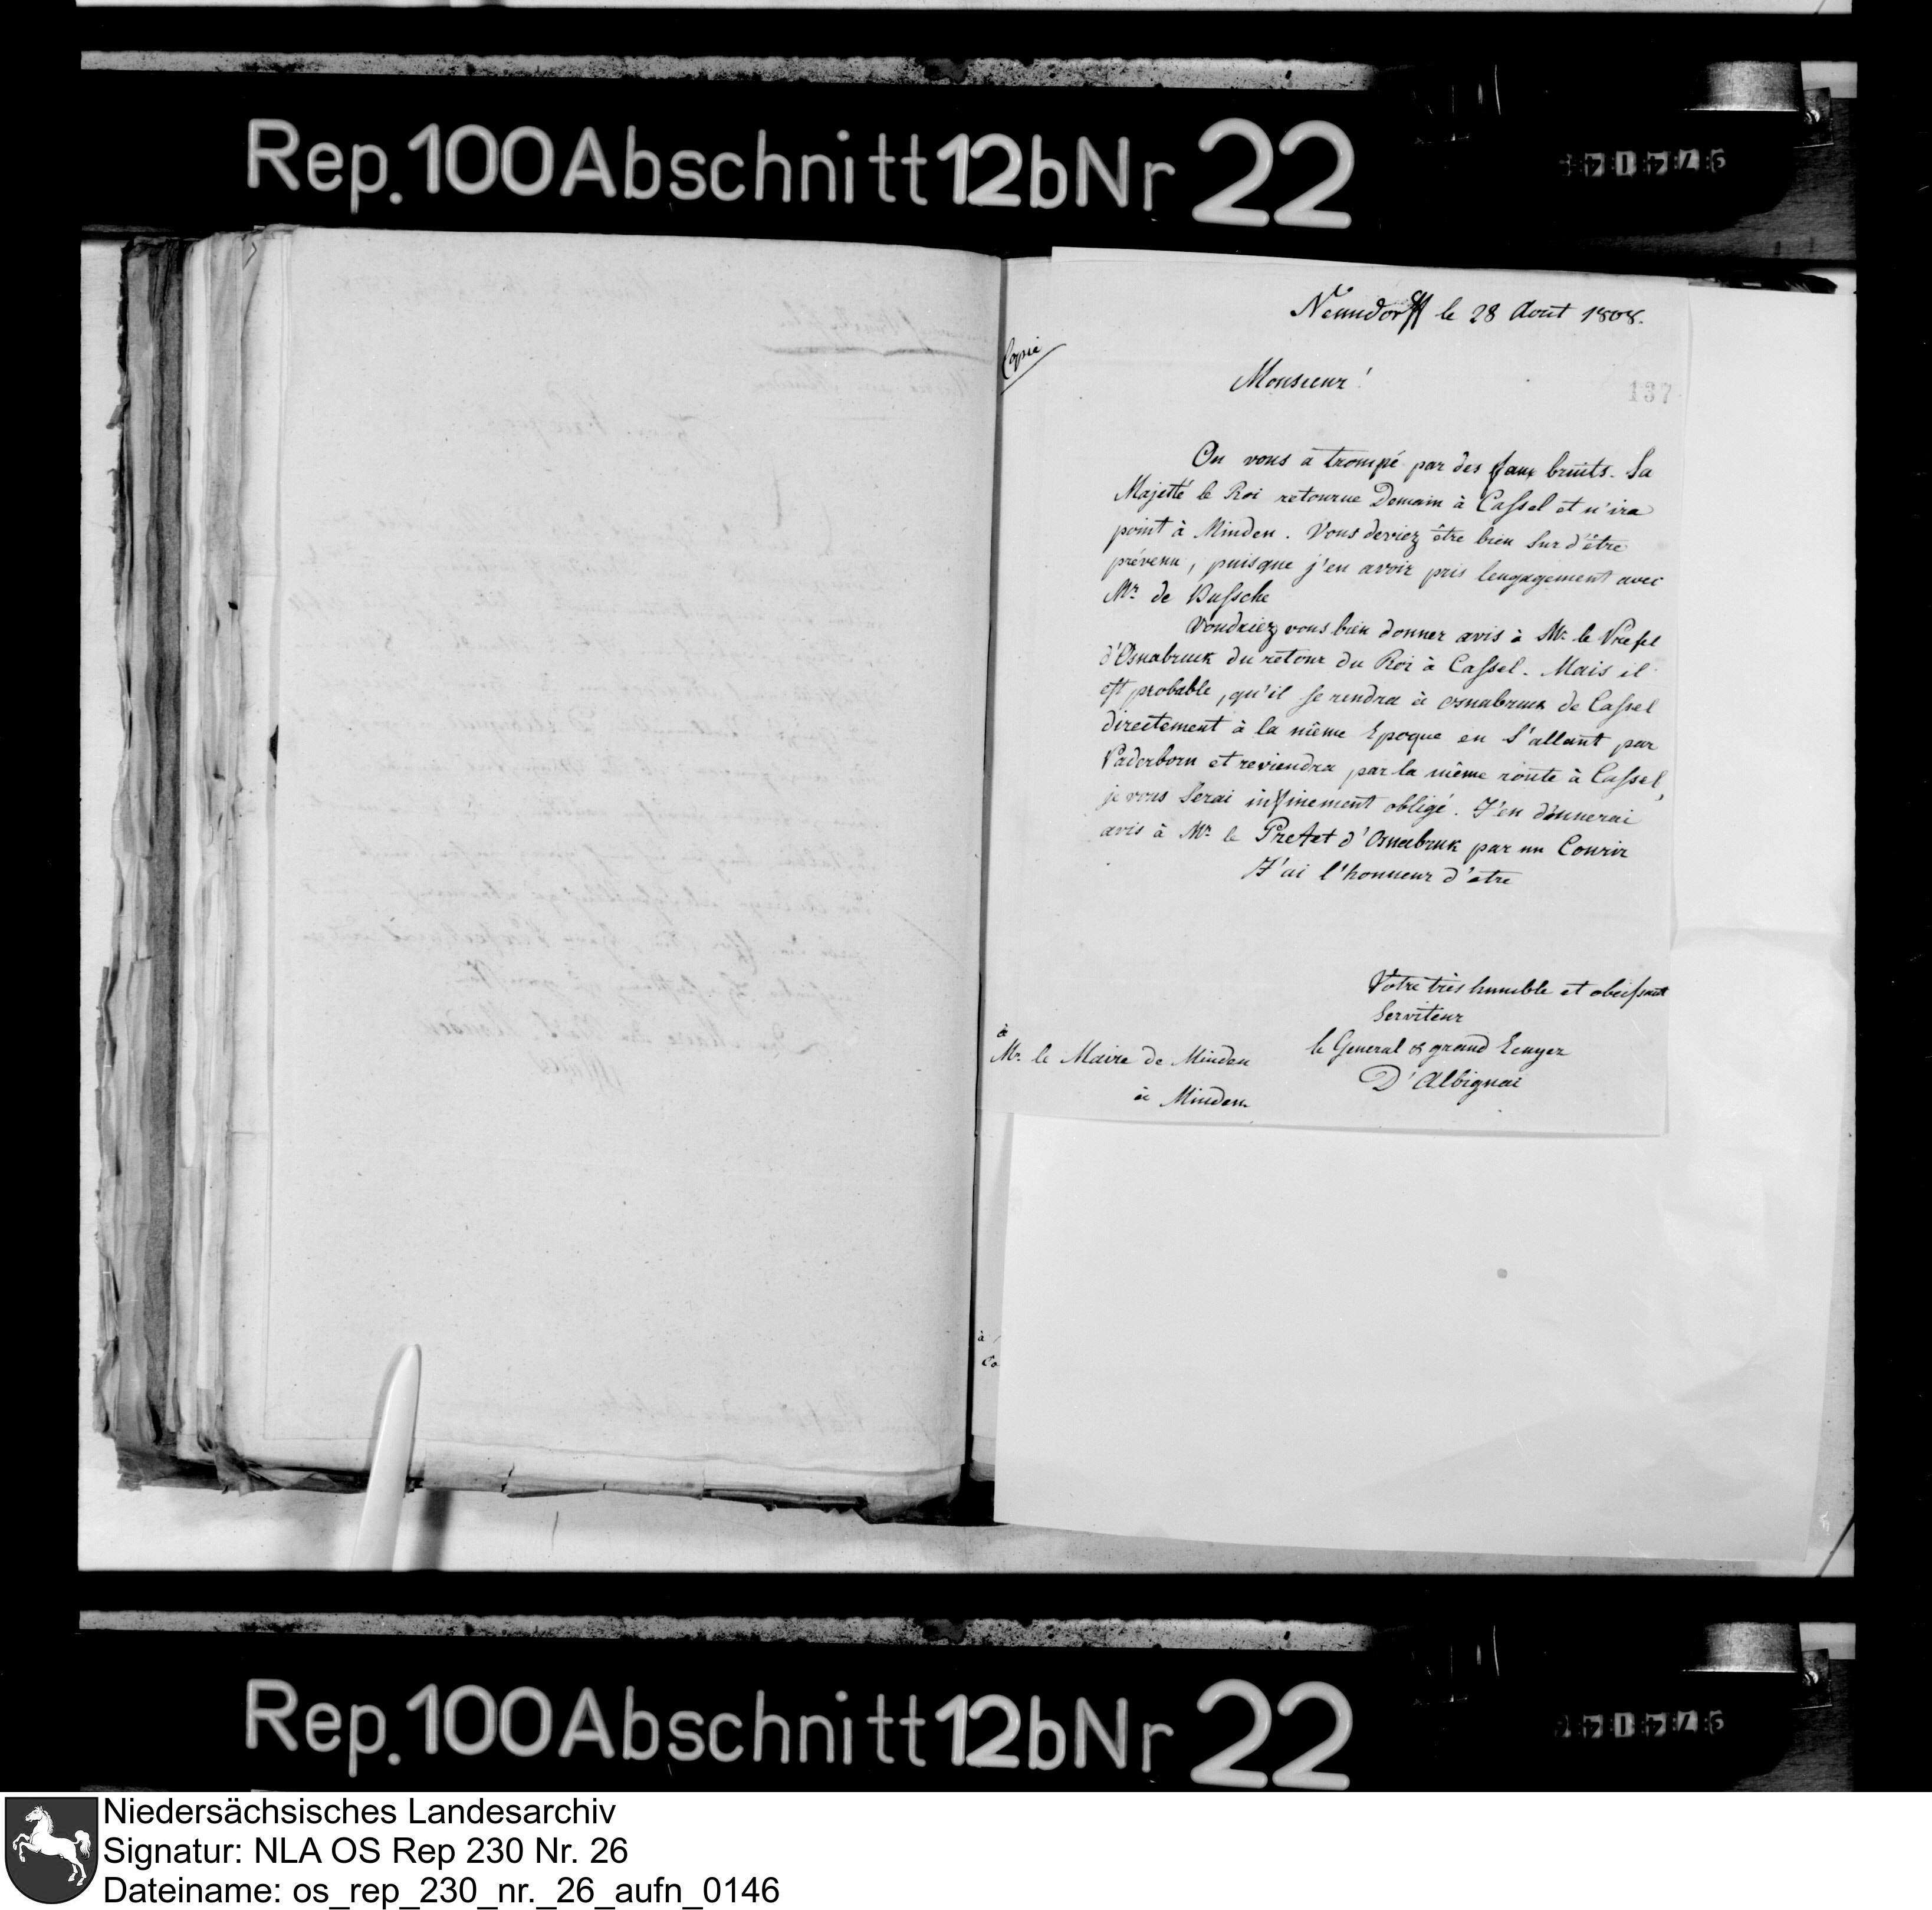 Rep. 100 Abschnitt 12b Nr 22
Copie
Nenndorff le 28 Aout 1808.
Monsieur!
137
On vous a trompé par des faux bruits. Sa
Majetté le Roi retourne Demain à Cassel et n'ira
point à Minden. Vous deviez être bien sur d'être
prévenu, puisque j'en avoir pris lengagement avec
Mr. de Bussche
Voudriez vous bien donner avis à Mr. le Prefet
d'Osnabruck du retour du Roi à Cassel. Mais il
est probable, qu'il se rendra à Osnabruck de Cassel
directement à la même Epoque en s'allant par
Paderborn et reviendra par la même route à Cassel,
je vous serai infinement obligé. J'en donnerai
avis à Mr. le Prefet d'Osnabruk par un Courir
J'ai l'honneur d'etre
Votre très humble et obeissant
Serviteur
le General & grand Ecuyer
D'Albignai
à
Mr. le Maire de Minden
à Minden.
à
Co
Rep. 100 Abschnitt 12b Nr 22
Niedersächsisches Landesarchiv
Signatur: NLA OS Rep 230 Nr. 26
Dateiname: os_rep_230_nr._26_aufn_0146